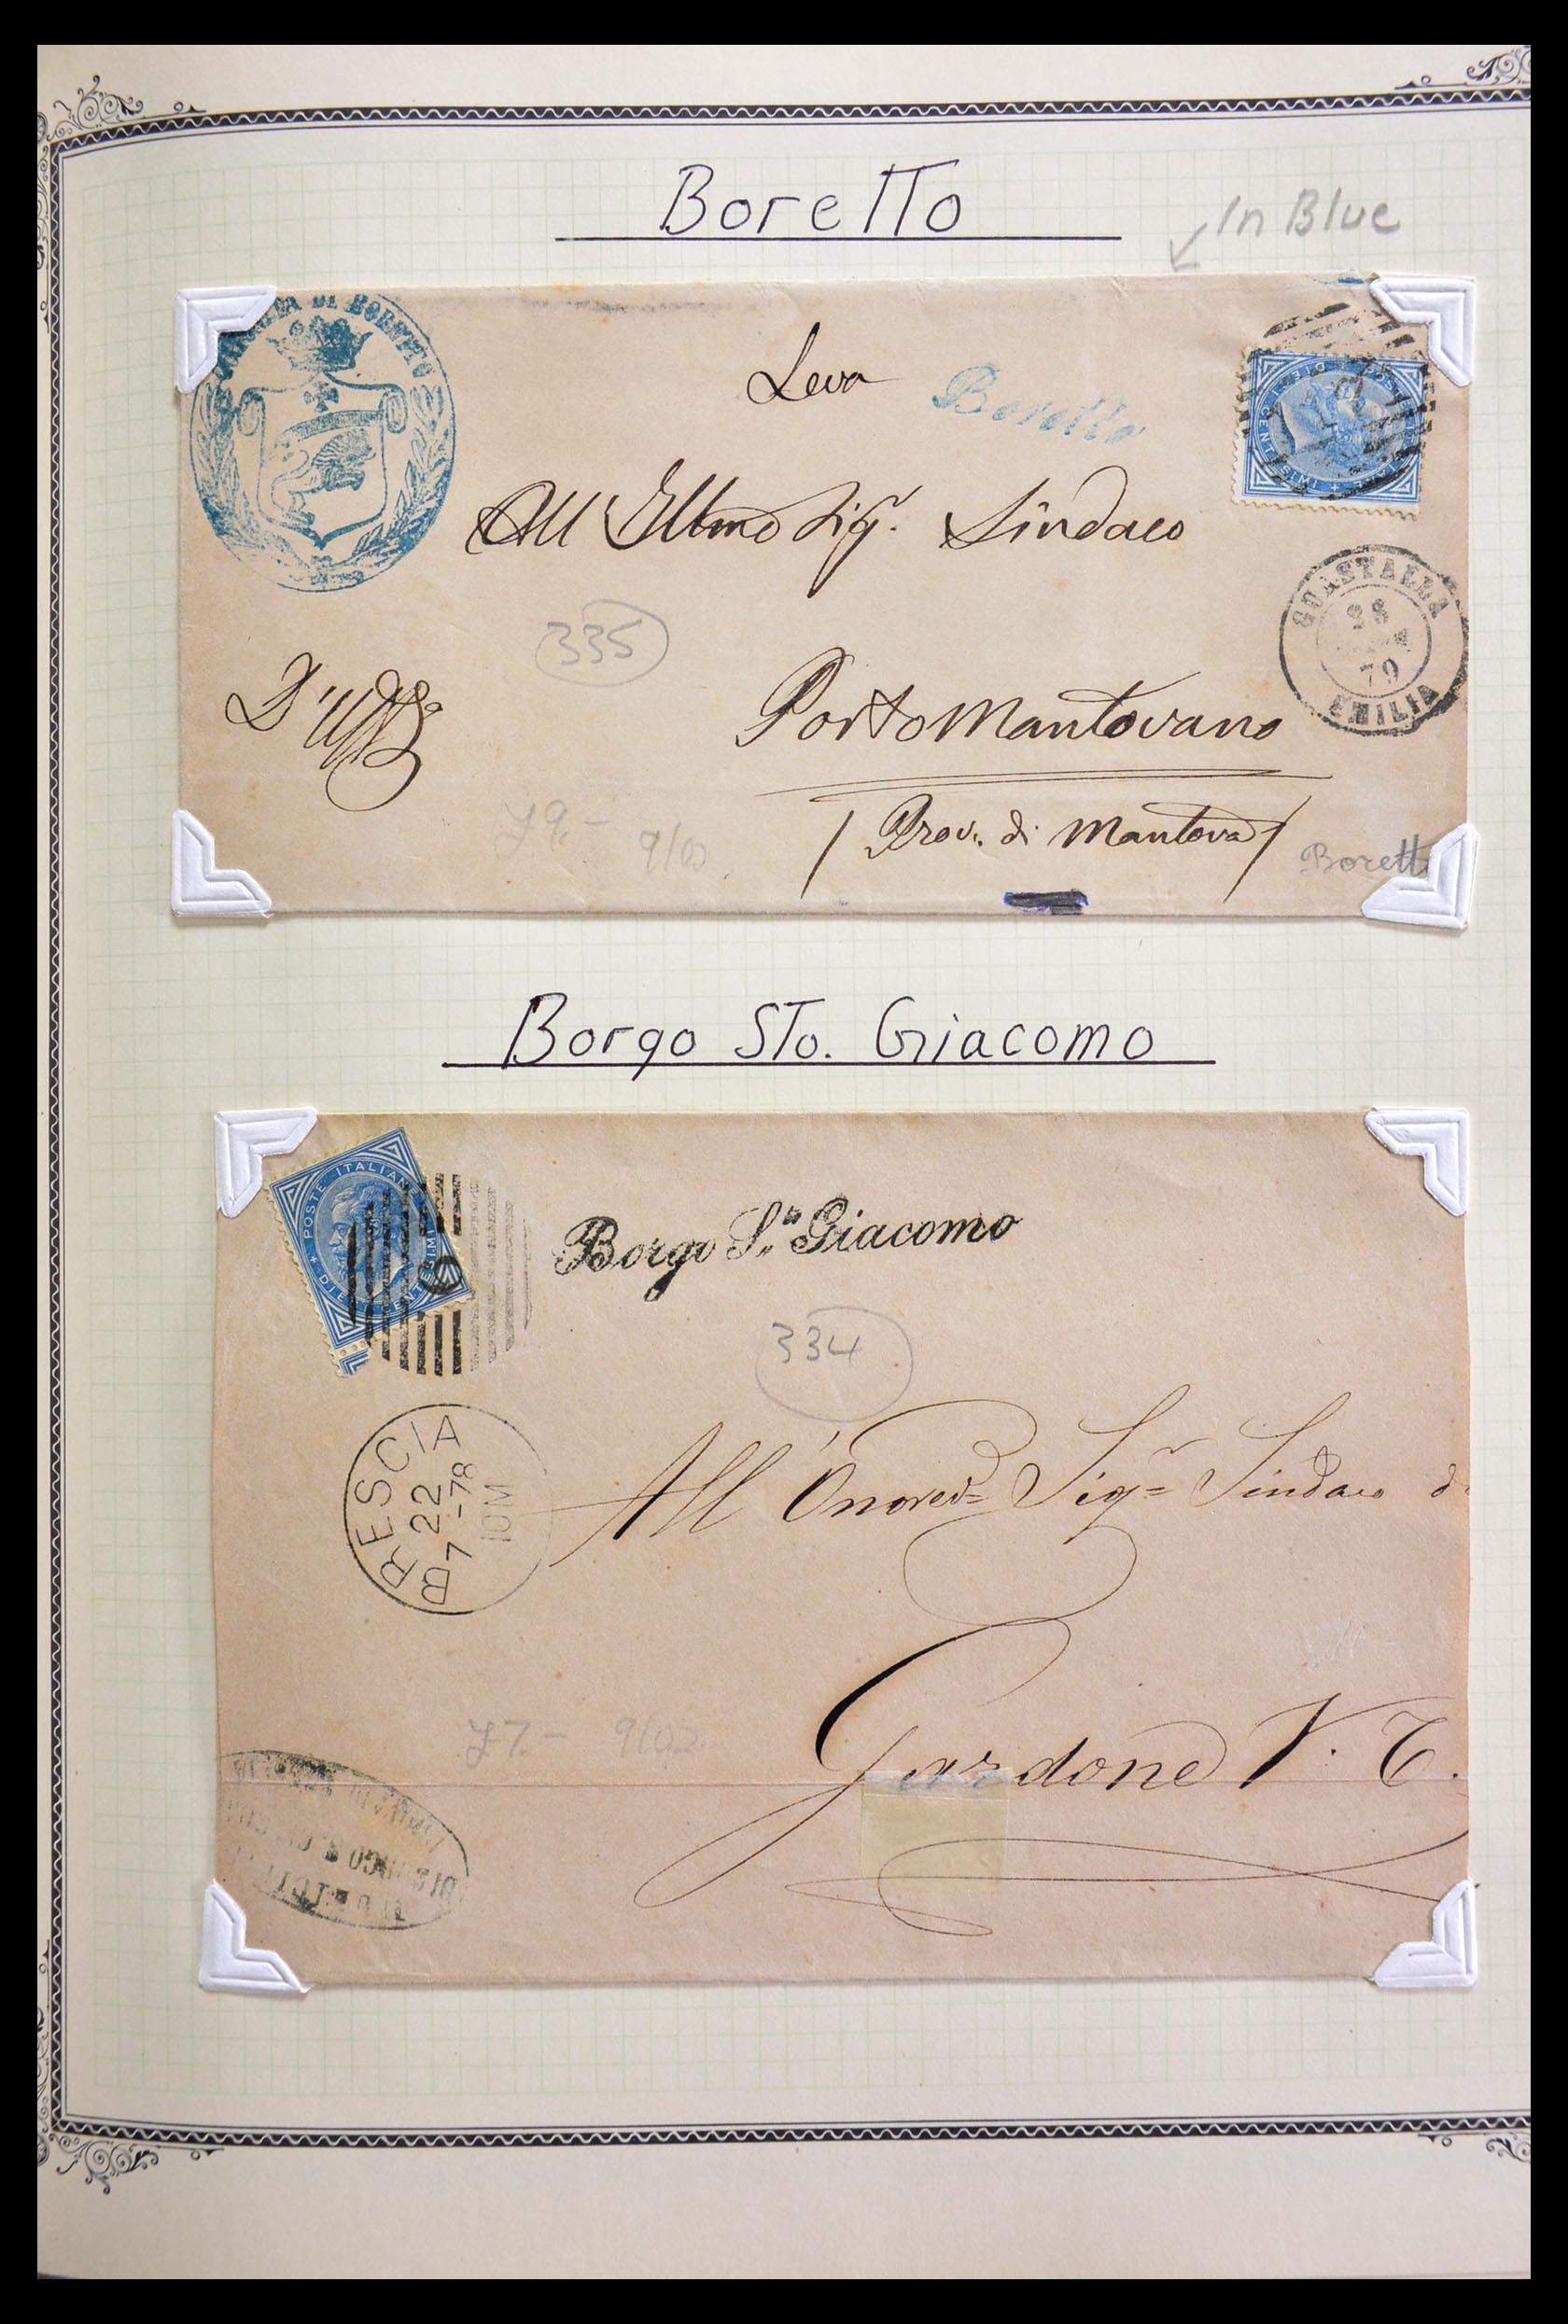 Boretto
In Blue
DI BORETTO
Leva
Boretto
All Illmo Sigr. Sindaco
335
GUASTALLA
28
79
EMILIA
Porto Mantovano
/ Prov. di Mantova /
9/00
Borett
Borgo STo. Giacomo
POSTE ITALIANE
Borgo S.to Giacomo
334
BRESCIA
22
7 -78
10M
All' Onorev= Sigr= Sindaco d
Gardone V. T.
9/02